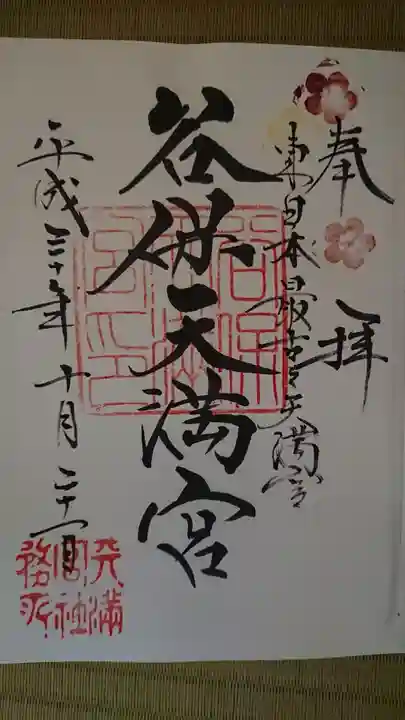 奉拝
東日本最古天満宮
谷保天満宮
谷保天満宮印
平成三十年十月二十一日
天満宮社務所